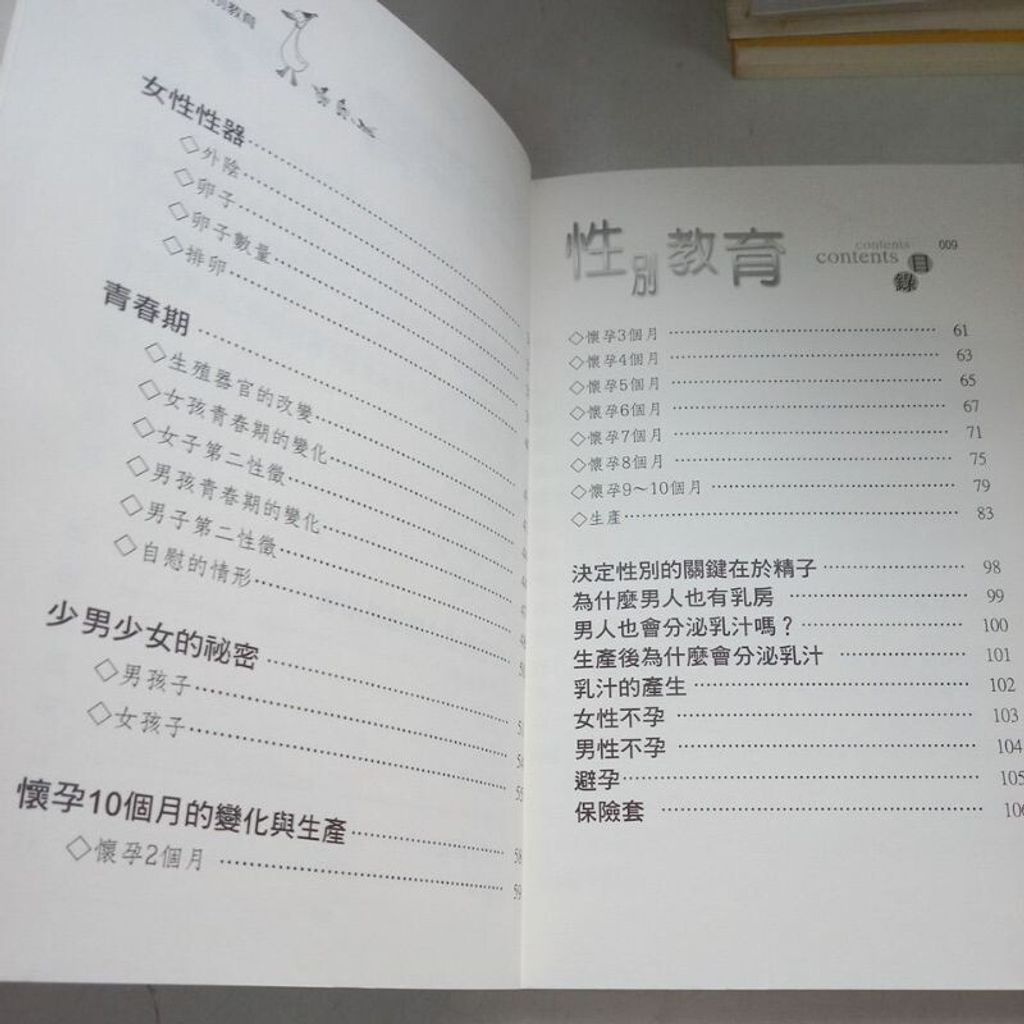 別教育
女性性器
◇外陰
◇卵子
◇卵子數量
◇排卵
青春期
◇生殖器官的改變
◇女孩青春期的變化
◇女子第二性徵
◇男孩青春期的變化
◇男子第二性徵
◇自慰的情形
少男少女的祕密
◇男孩子
◇女孩子
懷孕10個月的變化與生產 58
◇懷孕2個月 59
性別教育 contents contents 目錄 009
◇懷孕3個月 61
◇懷孕4個月 63
◇懷孕5個月 65
◇懷孕6個月 67
◇懷孕7個月 71
◇懷孕8個月 75
◇懷孕9～10個月 79
◇生產 83
決定性別的關鍵在於精子 98
為什麼男人也有乳房 99
男人也會分泌乳汁嗎？ 100
生產後為什麼會分泌乳汁 101
乳汁的產生 102
女性不孕 103
男性不孕 104
避孕 105
保險套